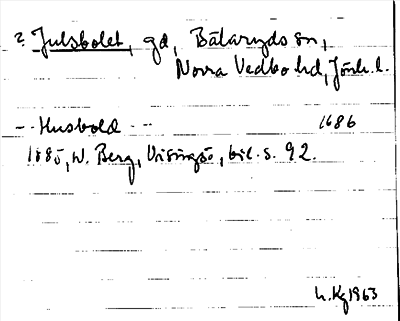 ? Julsbolet, gd, Bälaryds sn,
Norra Vedbo hd, Jönk. l.
-- Husbold -- 1686
1885, W. Berg, Visingsö, bil. s. 92.
1963